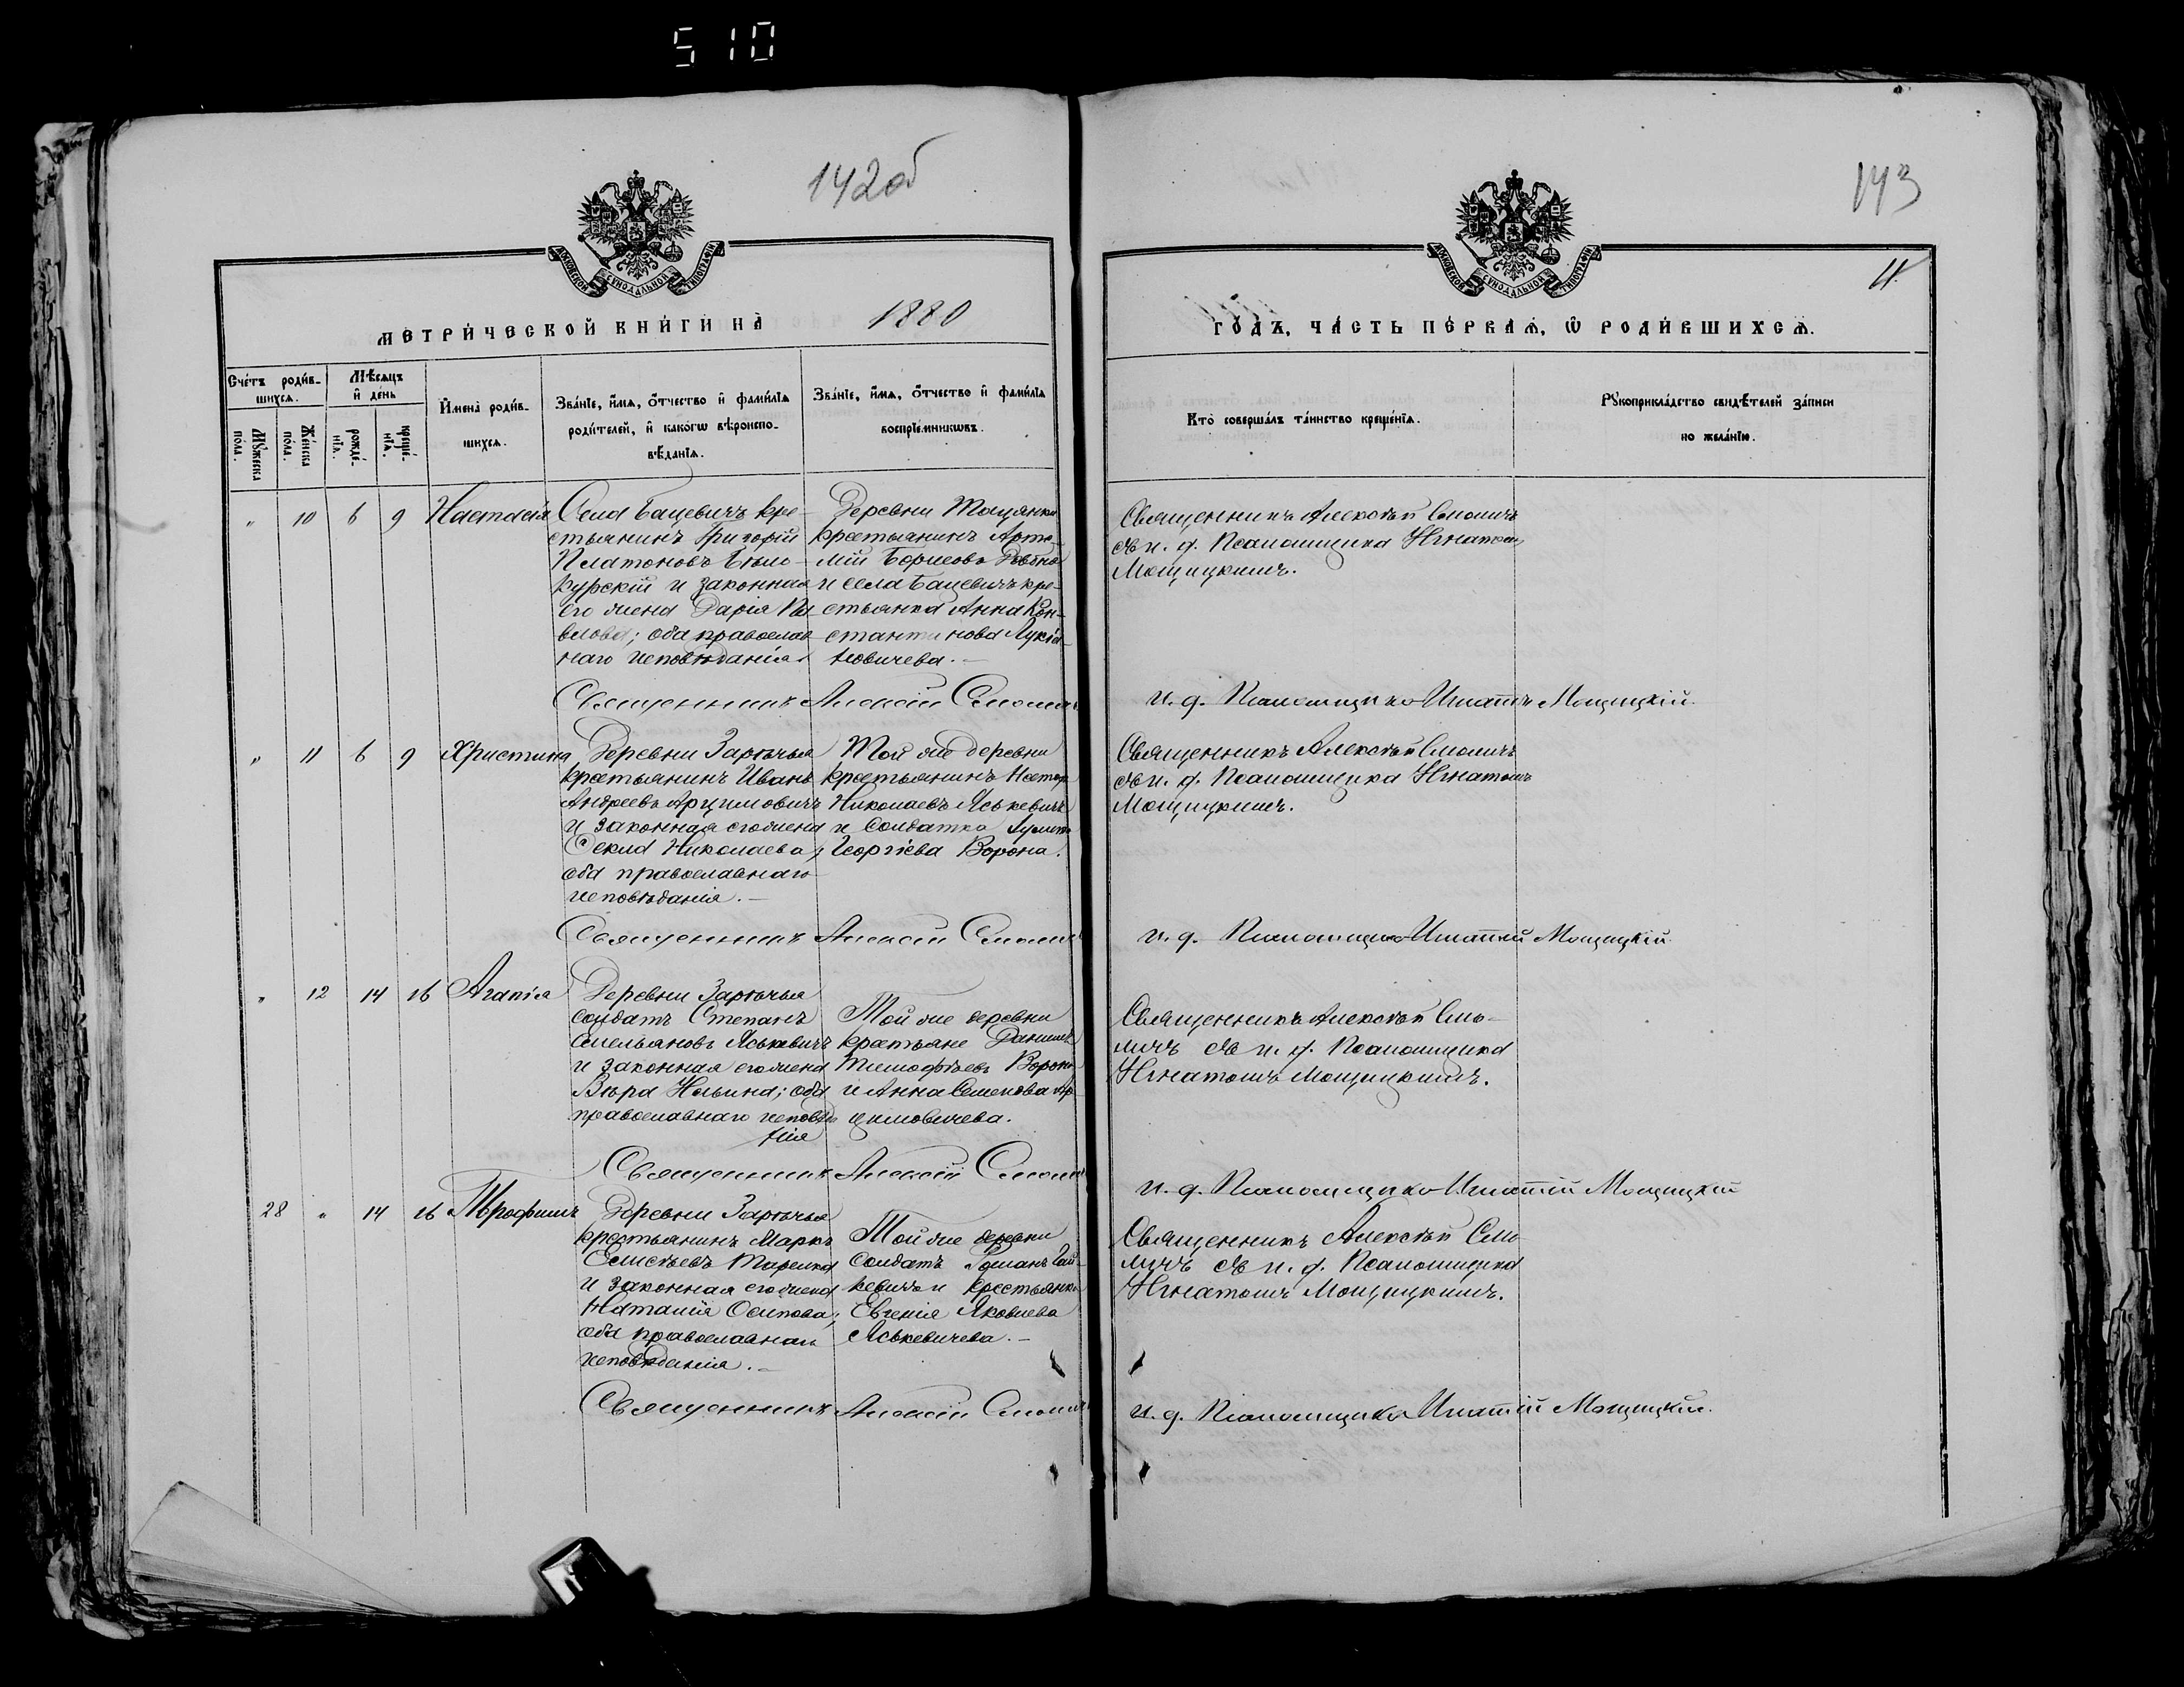 510
142об
143
11.
МЕТРИ́ЧЕСКОЙ КНИ́ГИ НА̀ 1880
ГО́ДЪ, ЧА́СТЬ ПЕ́РВАѦ, Ѽ РОДИ́ВШИХСѦ.
Сче́тъ роди́в-
шихсѧ.
Мѣ́сѧцъ
и҆ де́нь
Му́жеска
по́ла.
Же́нска
по́ла.
рожде́-
нїѧ.
креще́-
нїѧ.
И҆мена̀ роди́в-
шихсѧ.
Зва́нїе, и҆́мѧ, ѻ҆́тчество и҆ фами́лїѧ
роди́телей, и҆ како́гѡ вѣроиспо-
вѣ́данїѧ.
Зва́нїе, и҆́мѧ, ѻ҆́тчество и҆ фами́лїѧ
воспрїе́мникѡвъ.
Кто̀ соверша́лъ та́инство креще́нїѧ.
Рꙋкоприкла́дство свидѣ́телей за́писи
по жела́нїю.
" 10 6 9 Настасія
Села Бацевичъ кре-
стьянинъ Григорій
Платоновъ Бѣло-
курскій и законная
его жена Дарія Па-
влова; оба православ-
наго исповѣданія.
Деревни
крестьянинъ Арте-
мій Борисовъ
и села Бацевичъ кре-
стьянка Анна Кон-
стантинова Лукія-
новичева.
Священникъ Алексѣй Смоличъ
съ и. д. Псаломщика Игнатіемъ
Мощицкимъ.
Священникъ Алексій Смоличъ
и. д. Псаломщика Игнатій Мощицкій.
" 11 6 9 Христина
Деревни Зарѣчья
крестьянинъ Иванъ
Андреевъ Арцимовичъ
и законная его жена
Фекла Николаева;
оба православнаго
исповѣданія.
Той же деревни
крестьянинъ Несторъ
Николаевъ Яськевичъ
и Солдатка
Георгіева Ворона.
Священникъ Алексѣй Смоличъ
съ и. д. Псаломщика Игнатіемъ
Мощицкимъ.
Священникъ Алексій Смоличъ
и. д. Псаломщика Игнатій Мощицкій.
" 12 14 16 Агапія
Деревни Зарѣчья
солдатъ Степанъ
Емельяновъ Яськевичъ
и законная его жена
Вѣра Ильина; оба
православнаго исповѣда
нія
Той же деревни
крестьяне Даніилъ
Тимофѣевъ Ворона
и Анна Семенова Ар-
цимовичева.
Священникъ Алексѣй Смо-
личъ съ и. д. Псаломщика
Игнатіемъ Мощицкимъ.
Священникъ Алексій Смоличъ
и. д. Псаломщика Игнатій Мощицкій
28 " 14 16 Трофимъ
Деревни Зарѣчья
крестьянинъ Маркъ
Елисѣевъ
и законная его жена
Наталія Осипова;
оба православнаго
исповѣданія.
Той же деревни
солдатъ Романъ Гай-
кевичъ и крестьянка
Евгенія Яковлева
Яськевичева.
Священникъ Алексѣй Смо-
личъ съ и. д. Псаломщика
Игнатіемъ Мощицкимъ.
Священникъ Алексій Смоличъ
и. д. Псаломщика Игнатій Мощицкій.